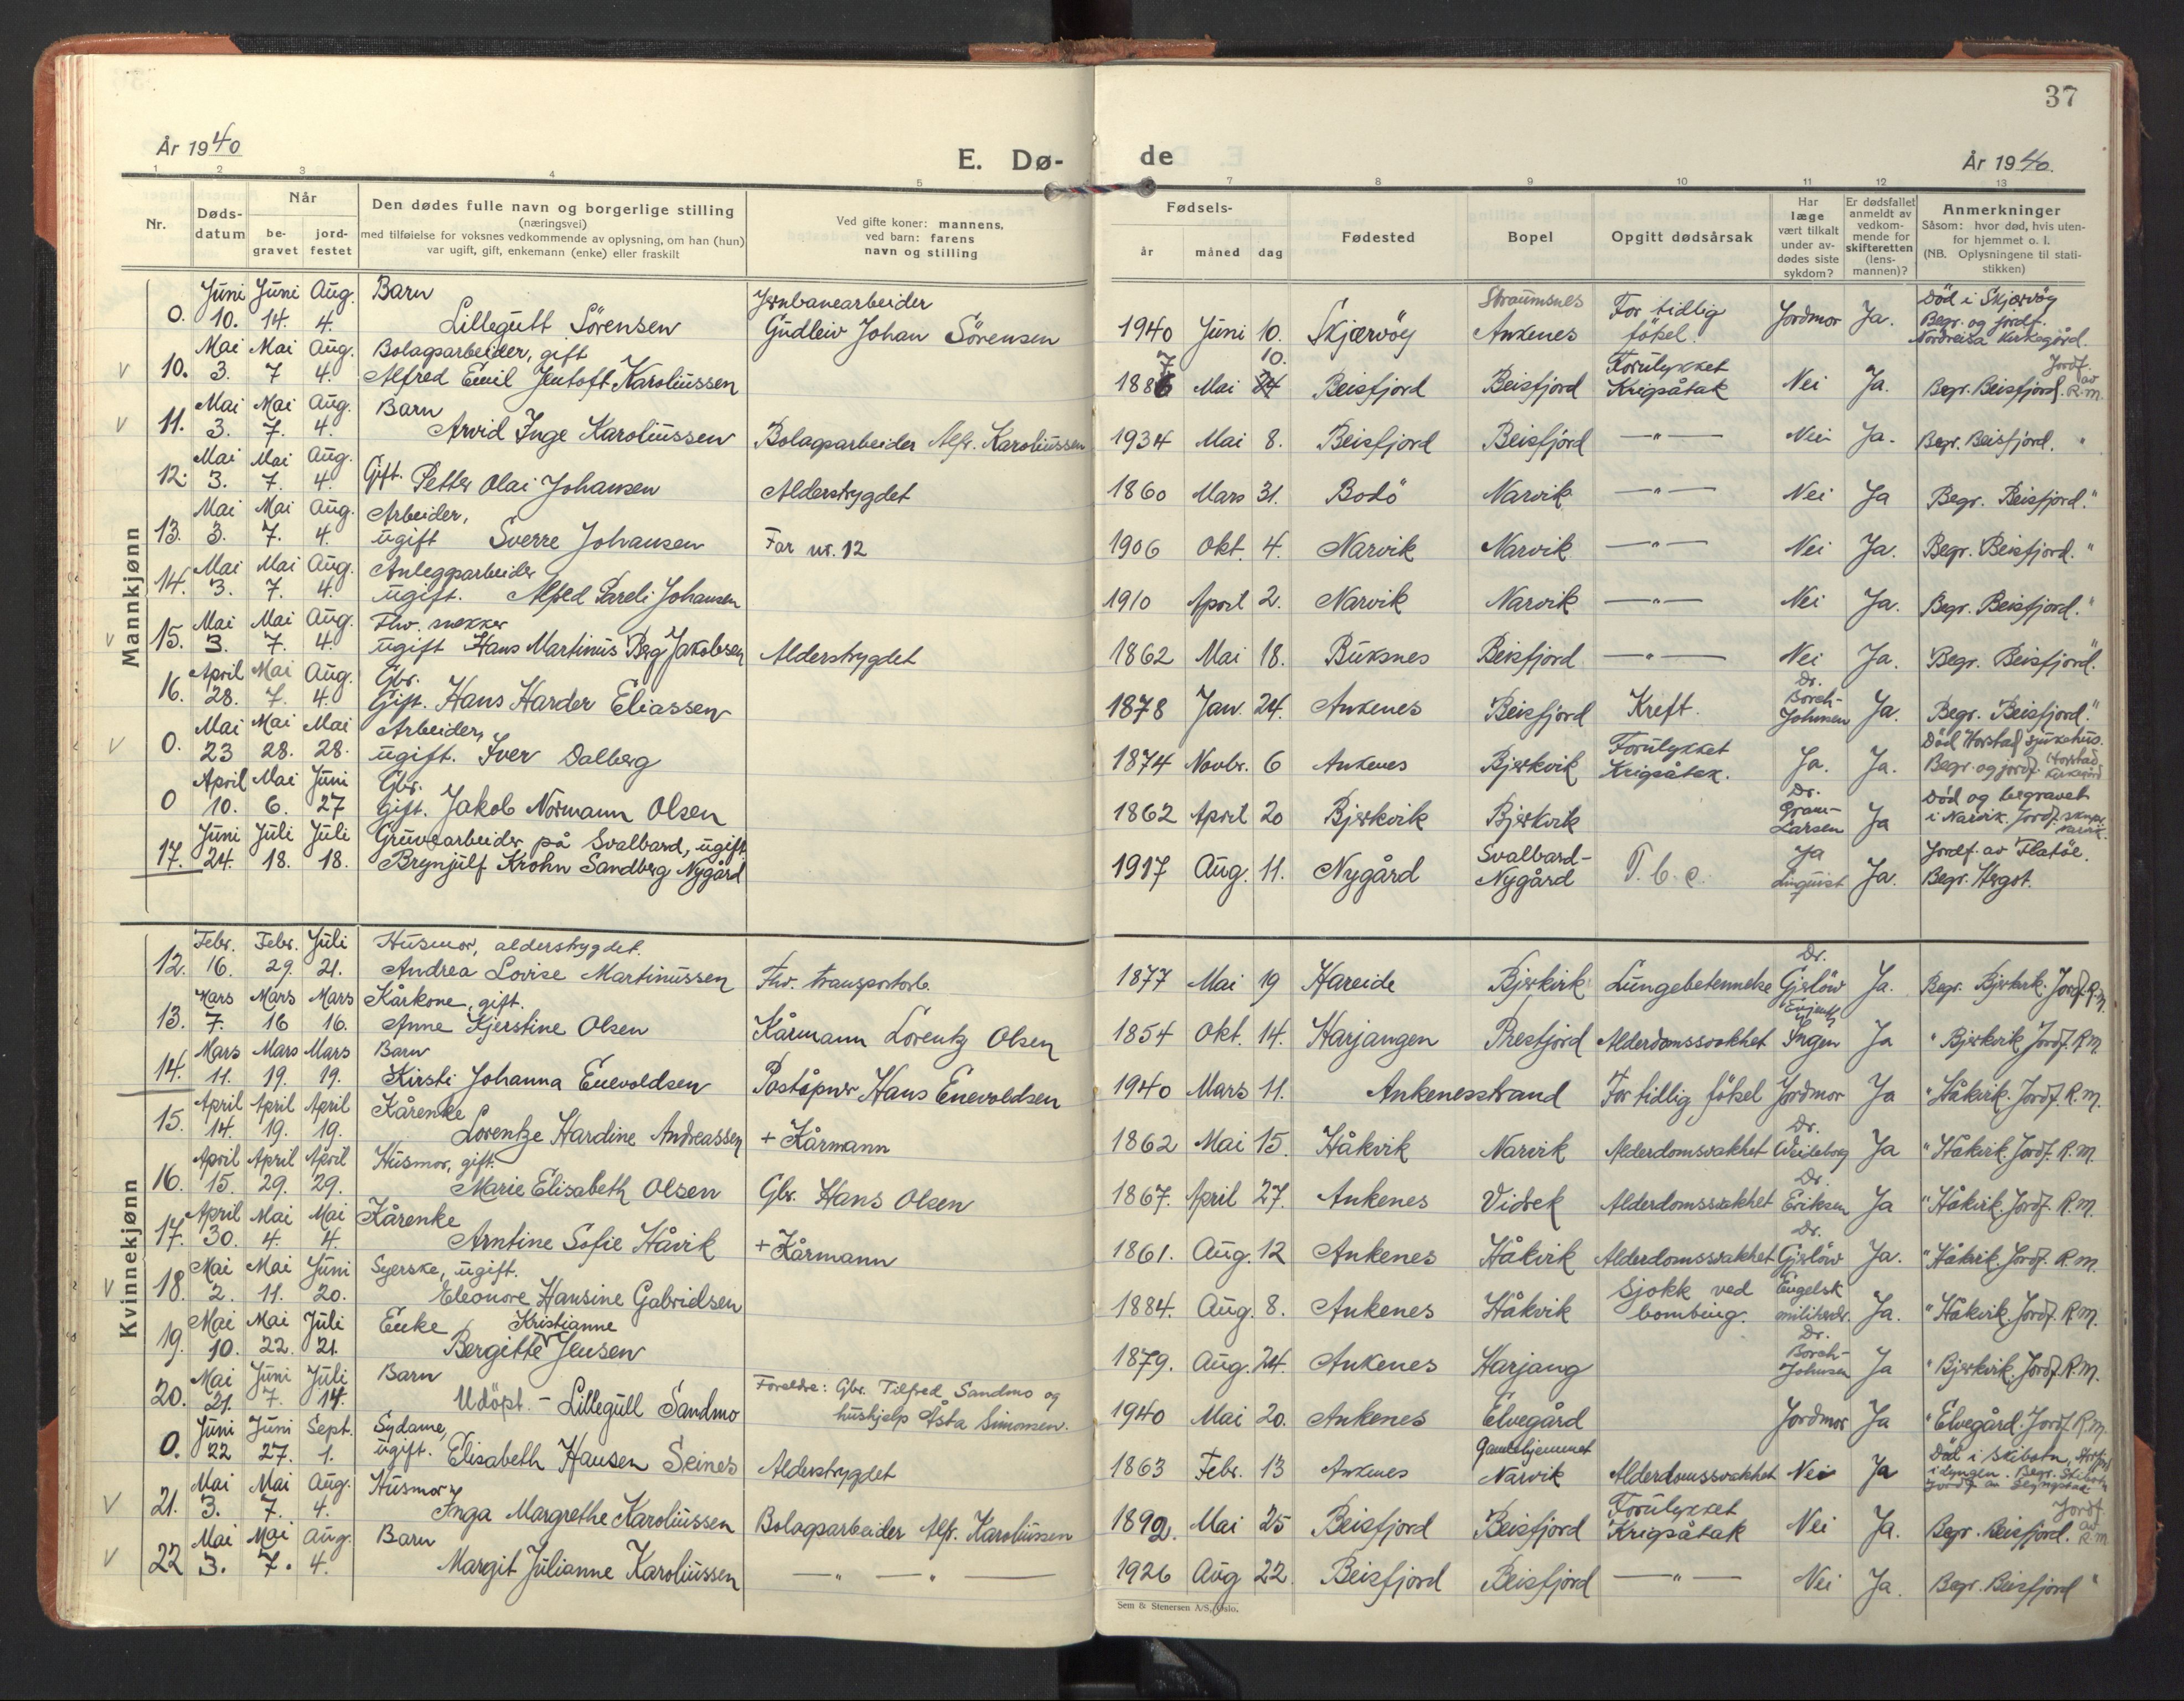 37
År 1940
E. Dø-
de
År 1940.
1 2 3 4 5 7 8 9 10 11 12 13
Nr.
Døds-
datum
Når
be-
gravet
jord-
festet
Den dødes fulle navn og borgerlige stilling
(næringsvei)
med tilføielse for voksnes vedkommende av oplysning, om han (hun)
var ugift, gift, enkemann (enke) eller fraskilt
Ved gifte koner: mannens,
ved barn: farens
navn og stilling
Fødsels-
år
måned
dag
Fødested
Bopel
Opgitt dødsårsak
Har
læge
vært tilkalt
under av-
dødes siste
sykdom?
Er dødsfallet
anmeldt av
vedkom-
mende for
skifteretten
(lens-
mannen)?
Anmerkninger
Såsom: hvor død, hvis uten-
for hjemmet o. l.
(NB. Oplysningene til stati-
stikken)
Mannkjønn
0. Juni 10. Juni 14. Aug. 4. Barn
Lillegutt Sörensen
Jernbanearbeider
Gudleiv Johan Sörensen
1940 Juni 10. Skjærvöy
Straumsnes
Ankenes
For tidlig
fötsel.
Jordmor Ja.
Död i Skjærvöy
Begr. og jordf.
Nordreisa kirkegård.
V 10. Mai 3. Mai 7 Aug. 4. Bolagsarbeider, gift
Alfred Emil Jentoft Karoliussen
1887 Mai 10. Beisfjord Beisfjord
Forulykket
Krigsåtak
Nei Ja. Begr. Beisfjord. Jordf. av R.m.
V 11. Mai 3. Mai 7. Aug. 4. Barn
Arvid Inge Karoliussen
Bolagsarbeider Alfr. Karoliussen
1934 Mai 8. Beisfjord Beisfjord —"— Nei Ja. Begr. Beisfjord. "
12. Mai 3. Mai 7. Aug. 4. Gift. Petter Olai Johansen
Alderstrygdet
1860 Mars 31. Bodö Narvik —"— Nei Ja Begr. Beisfjord. "
13. Mai 3. Mai 7. Aug. 4. Arbeider,
ugift Sverre Johansen
Far nr. 12
1906 Okt. 4. Narvik Narvik —"— Nei Ja. Begr. Beisfjord. "
14. Mai 3. Mai 7. Aug. 4. Anleggsarbeider
ugift. Alfred Pareli Johansen
1910 April 2. Narvik Narvik —"— Nei Ja. Begr. Beisfjord. "
V 15. Mai 3. Mai 7. Aug. 4. Fhv. snekker
ugift Hans Martinus Berg Jakobsen
Alderstrygdet
1862 Mai 18. Buksnes Beisfjord —"— Nei Ja. Begr. Beisfjord. "
16. April 28. Mai 7. Aug. 4. Gbr.
Gift. Hans Harder Eliassen
1878 Jan. 24. Ankenes Beisfjord Kreft.
Dr.
Borch-
Johnsen
Ja. Begr. Beisfjord. "
V 0. Mai 23 Mai 28. Mai 28. Arbeider,
ugift. Iver Dalberg
1874 Novbr. 6 Ankenes Bjerkvik
Forulykket
Krigsåtak.
Ja. Ja.
Död Harstad sjukehus.
Begr. og jordf. Harstad kirkegård
0 April 10. Mai 6. Juni 27 Gbr.
Gift. Jakob Normann Olsen
1862 April 20 Bjerkvik Bjerkvik
Dr.
Gram-
Larsen
Ja
Död og begravet
i Narvik. Jordf.
17. Juni 24. Juli 18. Juli 18. Gruvearbeider på Svalbard, ugift.
Brynjulf Krohn Sandberg Nygård
1917 Aug. 11. Nygård
Svalbard-
Nygård
T.b.c.
Ja
Linquist
Ja.
Jordf. av Flatöe.
Begr. Hergot.
Kvinnekjønn
12. Febr. 16. Febr. 29. Juli 21. Husmor, alderstrygdet.
Andrea Lovise Martinussen
Fhv. transportarb.
1877 Mai 19 Hareide Bjerkvik Lungebetennelse
Dr.
Gjslöw
Ja. Begr. Bjerkvik. Jordf. R.m.
13. Mars 7. Mars 16 Mars 16. Kårkone, gift.
Anne Kjerstine Olsen
Kårmann Lorentz Olsen
1854 Okt. 14. Harjangen Presfjord Alderdomssvakhet
Ingen
Ja " Bjerkvik Jordf. R.m.
14. Mars 11. Mars 19. Mars 19. Barn
Kirsti Johanna Enevoldsen
Poståpner Hans Enevoldsen
1940 Mars 11. Ankenesstrand For tidlig fötsel Jordmor Ja " Håkvik. Jordf. R.m.
15. April 14. April 19. April 19. Kårenke
Lorentze Hardine Andreassen
+ Kårmann
1862 Mai 15. Håkvik Narvik Alderdomsvakhet
Dr.
Weideborg
Ja " Håkvik. Jordf. R.m.
16. April 15. April 29. April 29. Husmor, gift.
Marie Elisabeth Olsen
Gbr. Hans Olsen
1867. April 27. Ankenes Vidrek Alderdomssvakhet
Dr.
Eriksen
Ja " Håkvik. Jordf. R.m.
17. April 30. Mai 4. Mai 4. Kårenke
Arntine Sofie Håvik
+ Kårmann
1861. Aug. 12 Ankenes Håkvik Alderdomssvakhet
Dr.
Gjslöw
Ja. " Håkvik. Jordf. R.m.
V 18. Mai 2. Mai 11. Juni 20. Syerske, ugift.
Eleonore Hansine Gabrielsen
1884. Aug. 8. Ankenes Håkvik
Sjokk ved
bombing.
Engelsk
militærdr.
Ja. " Håkvik. Jordf. R.m.
19. Mai 10. Mai 22. Juli 21. Enke Kristianne
Bergitte Jensen
1879. Aug. 24. Ankenes Harjang
Dr.
Borch-
Johnsen
Ja " Bjerkvik. Jordf. R.m.
20. Mai 21. Juni 7. Juli 14. Barn
Udöpt. - Lillegull Sandmo
Foreldre: Gbr. Tilfred Sandmo og
hushjelp Åsta Simonsen.
1940 Mai 20. Ankenes Elvegård Jordmor Ja " Elvegård. Jordf. R.m.
0. Juni 22 Juni 27. Sept. 1. Sydame,
ugift. Elisabeth Hansen Seines
Alderstrygdet
1863 Febr. 13 Ankenes
Gamlehjemmet
Narvik
Alderdomssvakhet Nei Ja
Död i Skibotn,
i Lyngen. Begr. Skibotn
V 21. Mai 3. Mai 7. Aug. 4. Husmor
Inga Margrethe Karoliussen
Bolagsarbeider Alfr. Karoliussen
1892. Mai 25 Beisfjord Beisfjord
Forulykket
Krigsåtak
Nei Ja. Begr. Beisfjord. Jordf. av R.m
V 22 Mai 3. Mai 7. Aug. 4. Barn
Margit Julianne Karoliussen
— " — " —
1926 Aug 22. Beisfjord Beisfjord —"— Nei Ja. Begr. Beisfjord "
Sem & Stenersen A/S, Oslo.